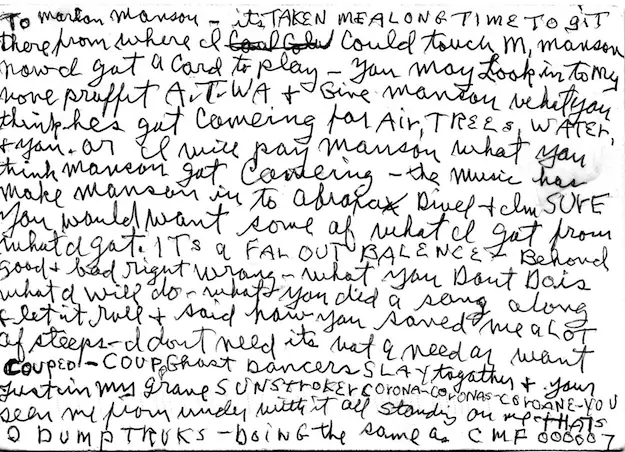 To marlon manson – its TAKEN ME A LONG TIME TO GIT
there from where I could touch M, manson
now I got a card to play – you may Look in to my
none proffit A.T.WA & Give manson what you
think hes got comeing for Air, TREES, WATER,
& you. or I will pay manson what you
think manson got comeing – the music has
make manson in to abraxax Divel & Im SURE
you would want some of what I got from
what I got. ITs a FAR OUT BALENCE – Behond
good & bad right wrong – what you Dont Do is
what I will do – what you did a song along
& let it roll & said how you saved me a LOT
of steeps – I dont need its not a need or want
COUPED – COUP. Ghost Dancers SLAY together & your
just in my grave SUNSTROKER CORONA-CORONAS-COROANE-YOU
seen me from under with it all standing on me THATS
2 DUMP TRUKS – DOING the same as CMF 000007